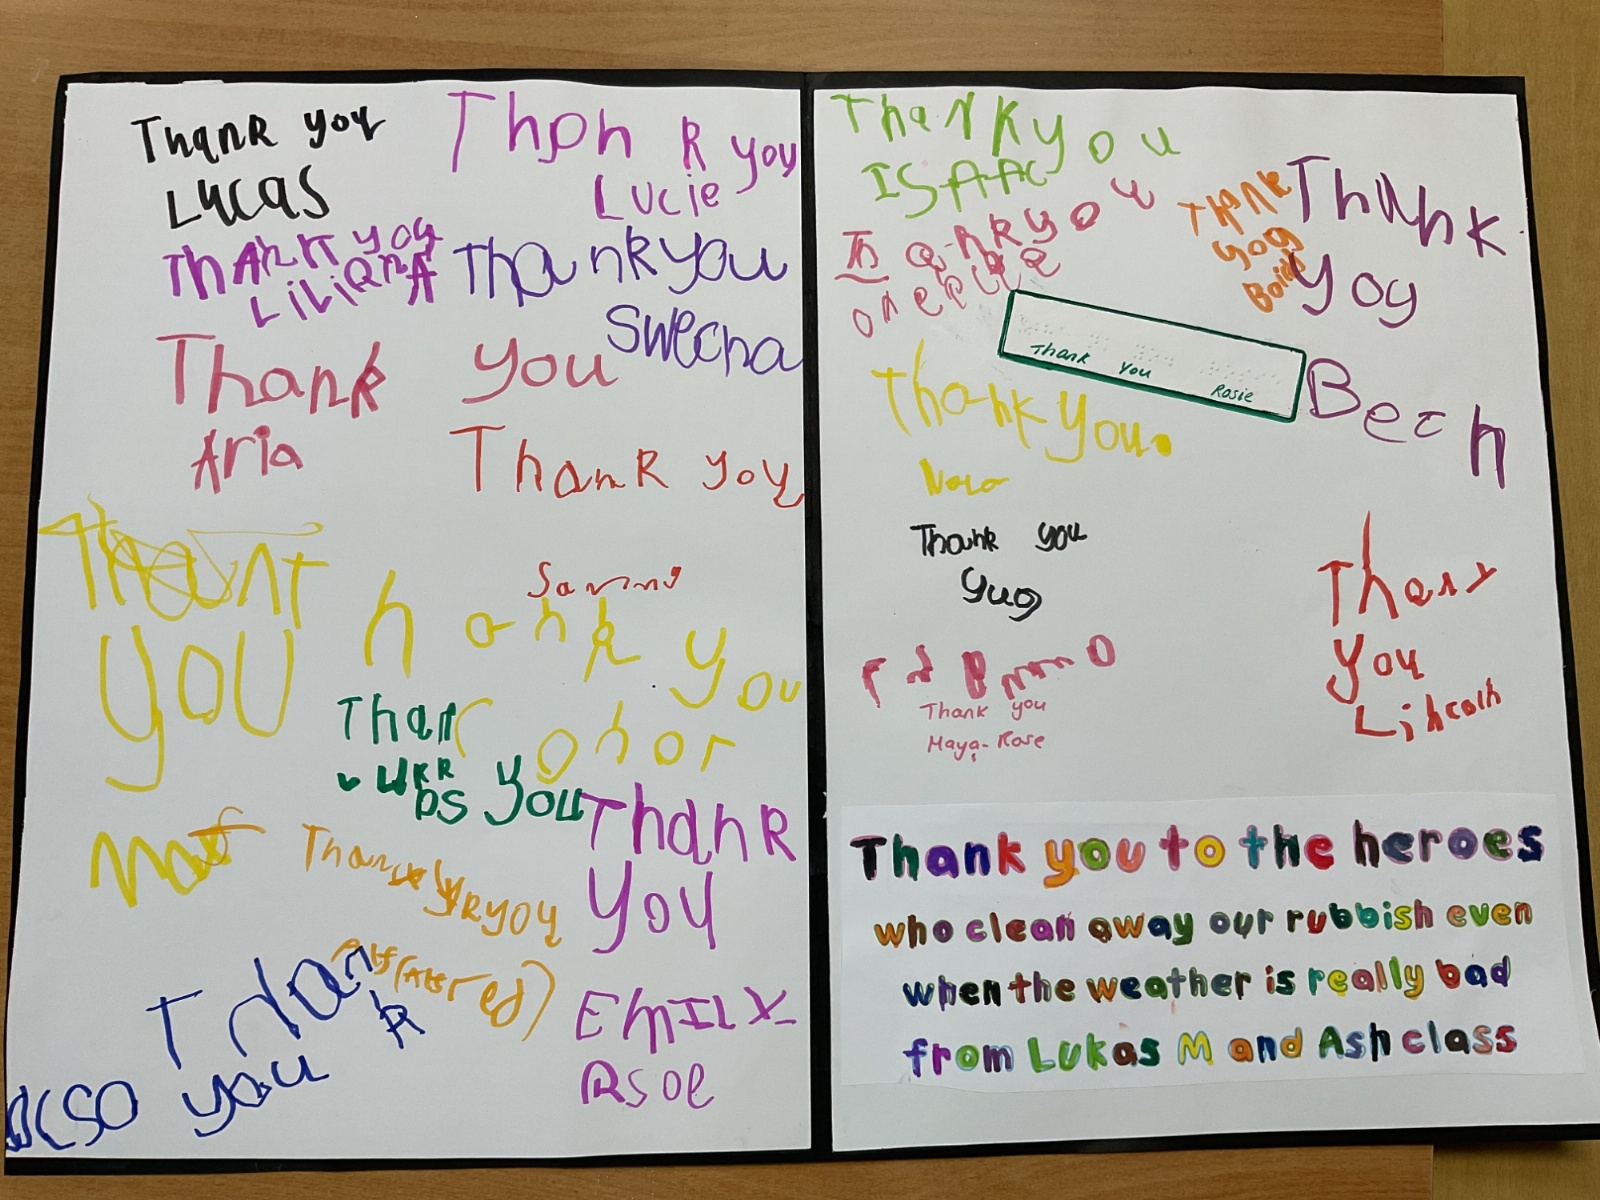 Thank you
Lucas
Thank you
Lucie
Thank you
Liliana
Thank you
Swecha
Thank you
Aria
Thank you
Thank
you
hank you
onor
Thank
you
Thank
you
Emily
Rsoe
Thank
you
Thank you
Isaac
Thank you
Thank
you
Thank
you
Beth
Thank You Rosie
Thank you
Thank you
Yug
Thank you
Maya-Rose
Thank
you
Lincoln
Thank you to the heroes
who clean away our rubbish even
when the weather is really bad
from Lukas M and Ash class